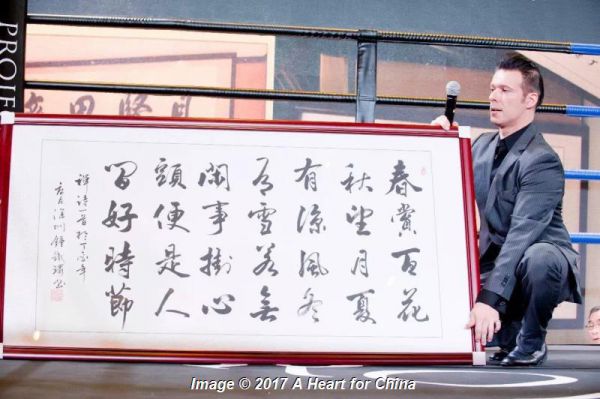 春賞百花
秋望月夏
有涼風冬
有雪若無
閑事掛心
頭便是人
間好時節
禪詩一首於丁酉年
深圳鍾
PROJE
Image © 2017 A Heart for China